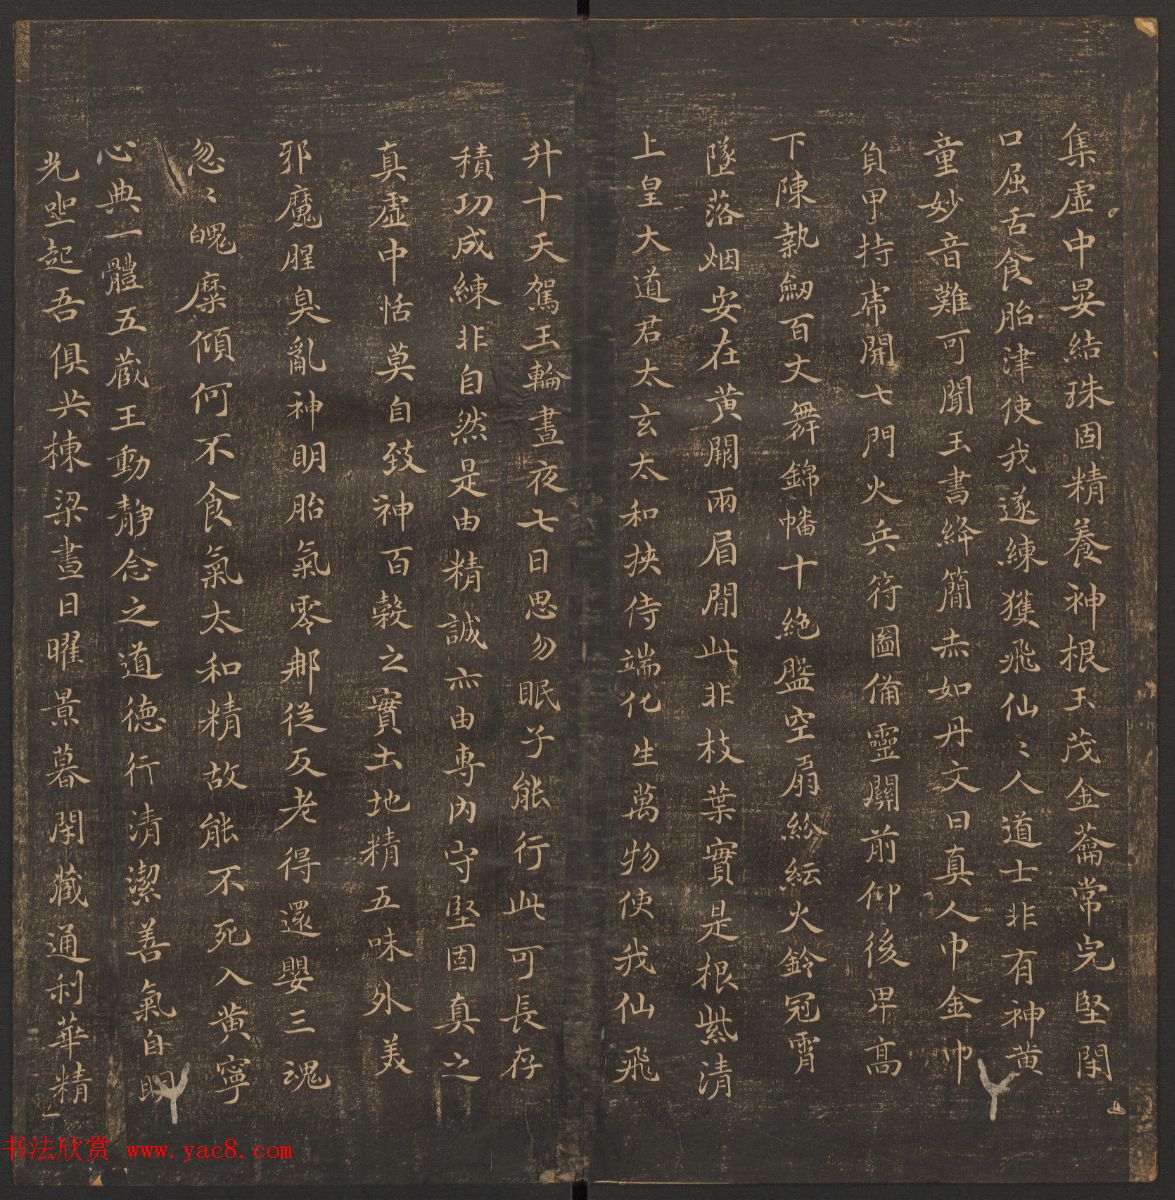 集虛中晏結珠固精養神根王茂金蘥常完堅閇
口屈舌食胎津使我遂練獲飛仙〻人道士非有神黄
童妙音難可聞王書絳簡赤如丹文曰真人巾金巾
負甲持席開七門火兵符圖備靈關前仰後卑高
下陳執劒百丈舞錦幡十絶盤空扇紛紜火鈴冠霄
墜落烟安在黄闕兩眉間此非枝葉實是根紫清
上皇大道君太玄太和挾侍端化生萬物使我仙飛
升十天駕王輪晝夜七日思勿眠子能行此可長存
積功成練非自然是由精誠亦由專內守堅固真之
真虛中恬莫自致神百穀之實土地精五味外美
邪魔腥臭亂神明胎氣零那從反老得還嬰三魂
忽〻魄糜傾何不食氣太和精故能不死入黄寧
心典一體五藏王動靜念之道德行清潔善氣自明
光坐起吾俱共棟梁晝日曜景暮閇藏通利華精
书法欣赏 www.yac8.com